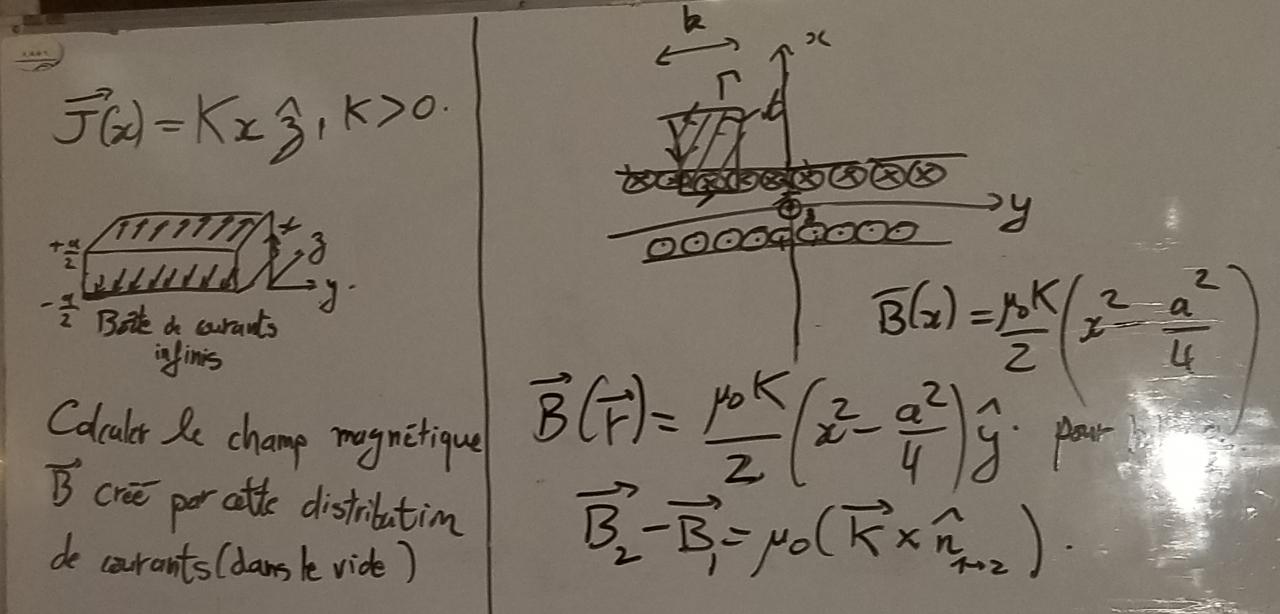 J⃗(x) = Kx ẑ, K>0.
+a/2
-a/2
z
y.
Boîte de courants
infinis
Calculer le champ magnétique
B⃗ créé par cette distribution
de courants (dans le vide)
x
Γ
y
B⃗(x) = μ₀K/2 (x² - a²/4)
B⃗(r⃗) = μ₀K/2 (x² - a²/4) ŷ. pour
B⃗₂ - B⃗₁ = μ₀(K⃗ × n̂₁→₂).